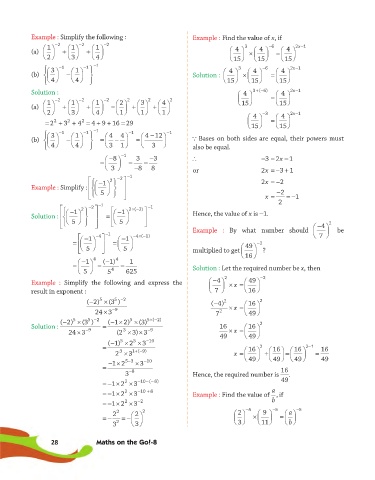 Example : Simplify the following :
(a) (1/2)^−2 + (1/3)^−2 + (1/4)^−2
(b) {(3/4)^−1 − (1/4)^−1}^−1
Solution :
(a) (1/2)^−2 + (1/3)^−2 + (1/4)^−2 = (2/1)^2 + (3/1)^2 + (4/1)^2
= 2^2 + 3^2 + 4^2 = 4 + 9 + 16 = 29
(b) {(3/4)^−1 − (1/4)^−1}^−1 = (4/3 − 4/1)^−1 = ((4−12)/3)^−1
= (−8/3)^−1 = 3/−8 = −3/8
Example : Simplify : [{(−1/5)^2}^−2]^−1
Solution : [{(−1/5)^2}^−2]^−1 = [(−1/5)^2×(−2)]^−1
= [(−1/5)^−4]^−1 = (−1/5)^−4×(−1)
= (−1/5)^4 = (−1)^4/5^4 = 1/625
Example : Simplify the following and express the
result in exponent :
(−2)^5 × (3^5)^−2
24×3^−9
Solution : (−2)^5 × (3^5)^−2 / 24×3^−9 = (−1×2)^5 × (3)^5×(−2) / (2^3×3)×3^−9
= (−1)^5 × 2^5 × 3^−10 / 2^3 × 3^1+(−9)
= −1×2^5−3 × 3^−10 / 3^−8
= −1×2^2 × 3^−10−(−8)
= −1×2^2 × 3^−10+8
= −1×2^2 × 3^−2
= −2^2/3^2 = −(2/3)^2
Example : Find the value of x, if
(4/15)^3 × (4/15)^−6 = (4/15)^2x−1
Solution : (4/15)^3 × (4/15)^−6 = (4/15)^2x−1
(4/15)^3+(−6) = (4/15)^2x−1
(4/15)^−3 = (4/15)^2x−1
∵ Bases on both sides are equal, their powers must
also be equal.
∴ −3 = 2x−1
or 2x = −3+1
2x = −2
x = −2/2 = −1
Hence, the value of x is −1.
Example : By what number should (−4/7)^2 be
multiplied to get (49/16)^−2 ?
Solution : Let the required number be x, then
(−4/7)^2 × x = (49/16)^−2
(−4)^2/7^2 × x = (16/49)^2
16/49 × x = (16/49)^2
x = (16/49)^2 ÷ (16/49) = (16/49)^2−1 = 16/49
Hence, the required number is 16/49.
Example : Find the value of a/b, if
(2/3)^−6 × (9/11)^−6 = (a/b)^−6
28 Maths on the Go!-8